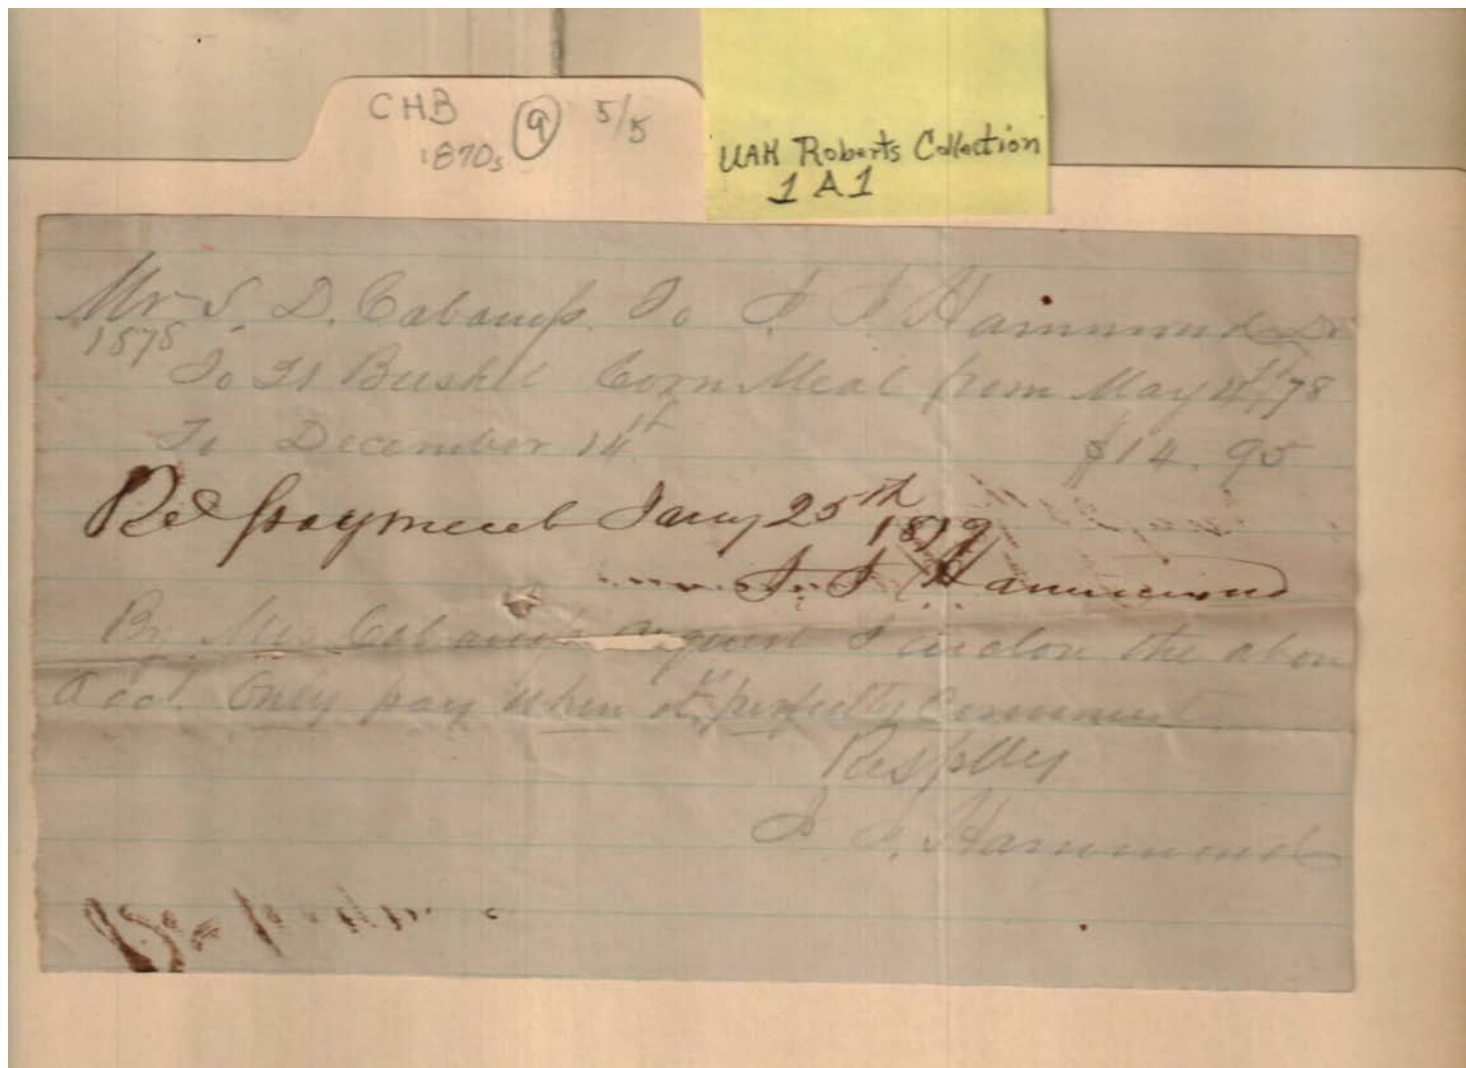 CHB 9 5/5
1870s
UAH Roberts Collection
1 A 1
Mr S. D. Cabaniss To Hammond Dr
1878
To Bushel Corn Meal from May /78
To December 14th $14.95
Rec payment Jany 25th
1879
Hammond
By Mrs Cabaniss request I inclose the above
Acct. Only pay when its perfectly convenient
Resptlly
Hammond